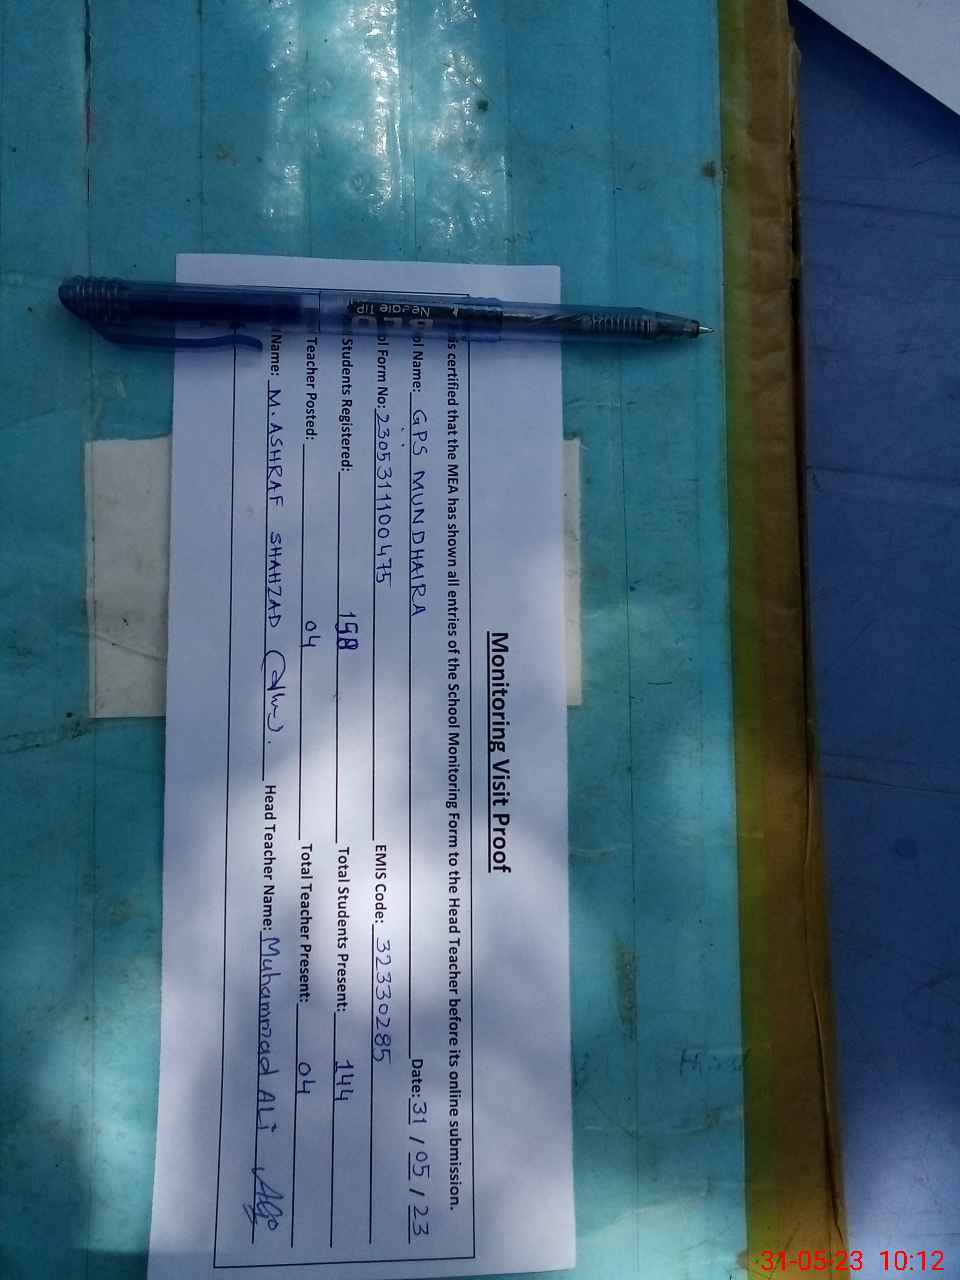 Monitoring Visit Proof
is certified that the MEA has shown all entries of the School Monitoring Form to the Head Teacher before its online submission.
ol Name: GPS MUNDHAIRA Date: 31 / 05 / 23
ol Form No: 2305311100475 EMIS Code: 32330285
Students Registered: 198 Total Students Present: 144
Teacher Posted: 04 Total Teacher Present: 04
Name: M. ASHRAF SHAHZAD Head Teacher Name: Muhammad ALi
Needle TIP
31-05-23 10:12